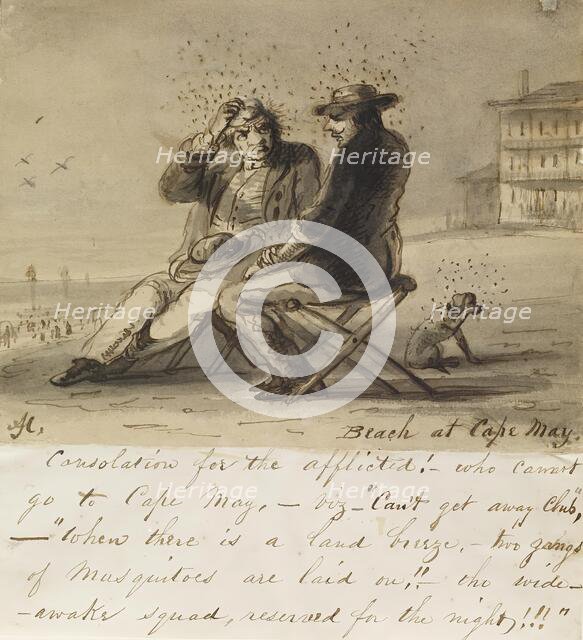 Heritage Heritage
Heritage Heritage Heritage
Heritage Heritage
H. Beach at Cape May.
Consolation for the afflicted!- who cannot
go to Cape May, - viz- "Can't get away Club",
- "When there is a land breeze, - two gangs
of Musquitoes are laid on,!!- the wide-
-awake squad, reserved for the night,!!!"